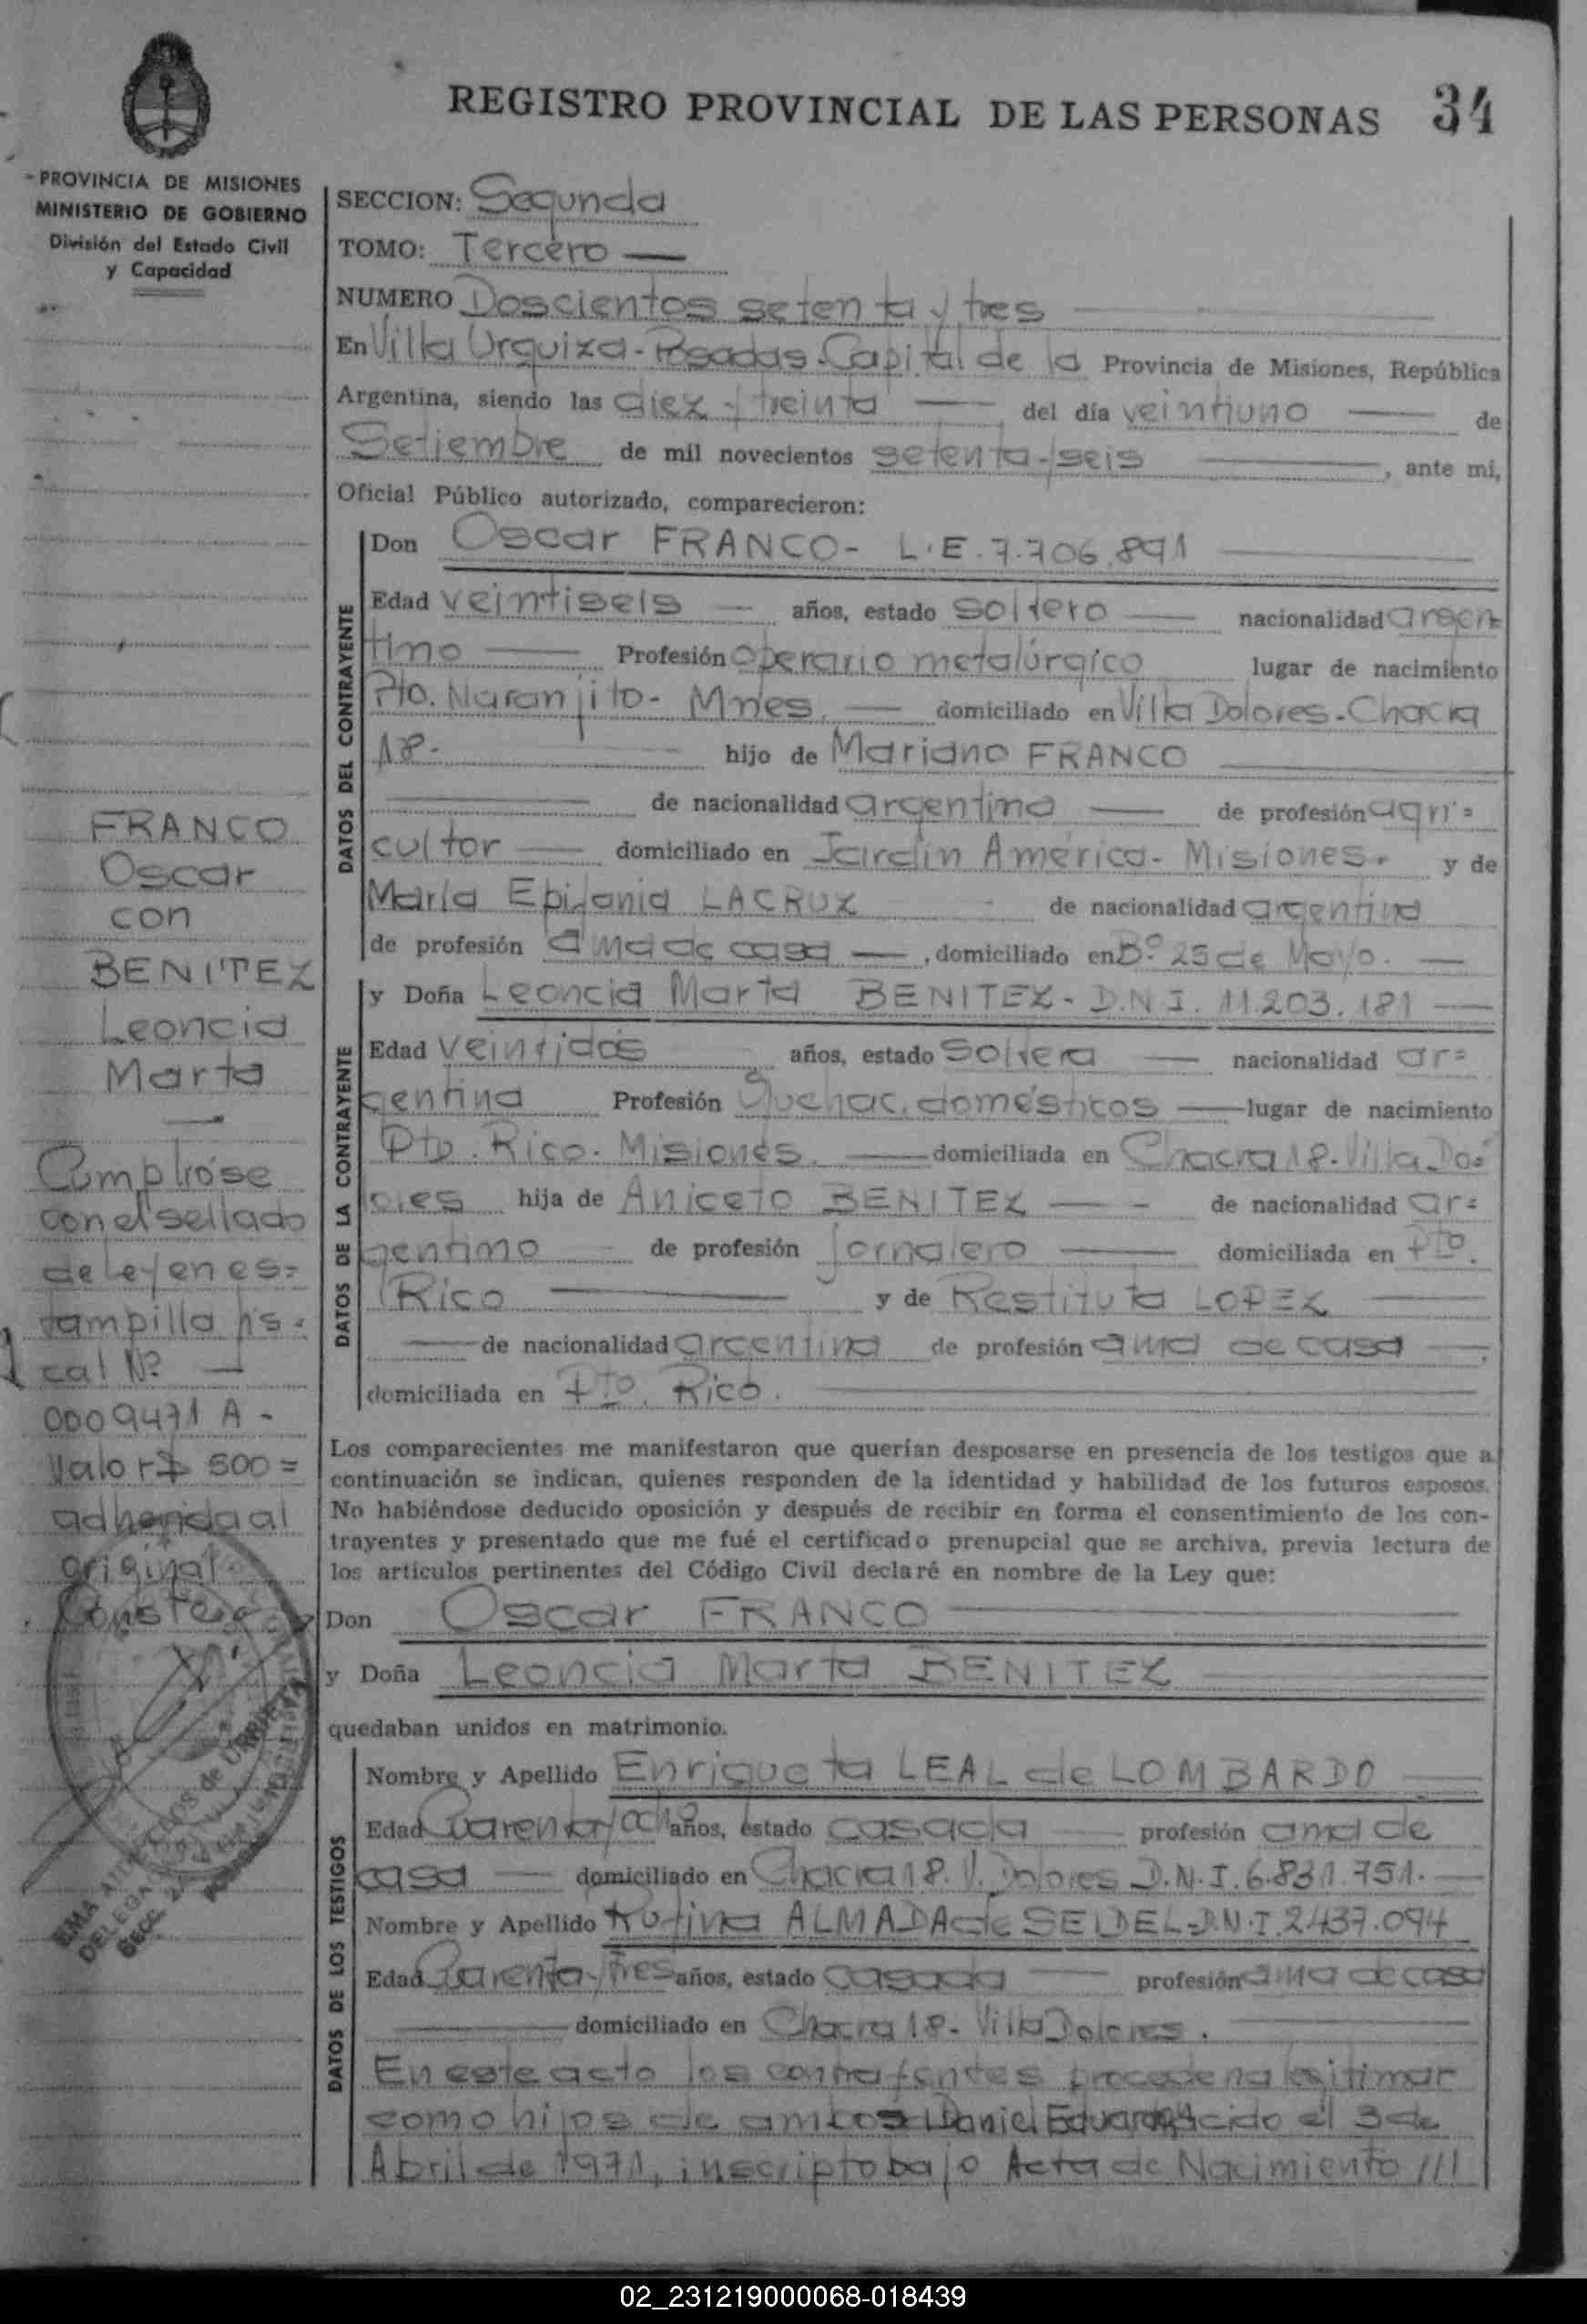 REGISTRO PROVINCIAL DE LAS PERSONAS 34
PROVINCIA DE MISIONES
MINISTERIO DE GOBIERNO
División del Estado Civil
y Capacidad
SECCION: Segunda
TOMO: Tercero —
NUMERO Doscientos setenta y tres
En Villa Urquiza - Posadas - Capital de la Provincia de Misiones, República
Argentina, siendo las diez y treinta — del día veintiuno — de
Setiembre de mil novecientos setenta y seis —, ante mi,
Oficial Público autorizado, comparecieron:
DATOS DEL CONTRAYENTE
Don Oscar FRANCO - L.E. 7.706.891
Edad veintiseis — años, estado soltero — nacionalidad argen
tino — Profesión operario metalúrgico lugar de nacimiento
Pto. Naranjito - Mnes. — domiciliado en Villa Dolores - Chacra
18. hijo de Mariano FRANCO
— de nacionalidad argentino — de profesión agri=
cultor — domiciliado en Jardín América - Misiones. y de
María Epifania LACRUZ de nacionalidad argentina
de profesión ama de casa —, domiciliado en Bº 25 de Mayo. —
DATOS DE LA CONTRAYENTE
y Doña Leoncia Marta BENITEZ - D.N.I. 11.203.181 —
Edad veintidós años, estado soltera — nacionalidad ar=
gentina Profesión Quehac. domésticos — lugar de nacimiento
Pto. Rico - Misiones. — domiciliada en Chacra 18 - Villa Do=
lores hija de Aniceto BENITEZ — - de nacionalidad ar=
gentino de profesión jornalero — domiciliada en Pto.
Rico — y de Restituta LOPEZ —
— de nacionalidad argentina de profesión ama de casa —,
domiciliada en Pto. Rico.
Los comparecientes me manifestaron que querían desposarse en presencia de los testigos que a
continuación se indican, quienes responden de la identidad y habilidad de los futuros esposos.
No habiéndose deducido oposición y después de recibir en forma el consentimiento de los con-
trayentes y presentado que me fué el certificado prenupcial que se archiva, previa lectura de
los artículos pertinentes del Código Civil declaré en nombre de la Ley que:
Don Oscar FRANCO
y Doña Leoncia Marta BENITEZ
quedaban unidos en matrimonio.
DATOS DE LOS TESTIGOS
Nombre y Apellido Enriqueta LEAL de LOMBARDO
Edad Cuarenta y ocho años, estado casada — profesión ama de
casa — domiciliado en Chacra 18. V. Dolores D.N.I. 6.831.751. —
Nombre y Apellido Rufina ALMADA de SEIDEL - D.N.I. 2437.094
Edad Cuarenta y tres años, estado casada — profesión ama de casa
— domiciliado en Chacra 18 - Villa Dolores.
En este acto los contrayentes proceden a legitimar
como hijos de ambos a Daniel Eduardo nacido el 3 de
Abril de 1971, inscripto bajo Acta de Nacimiento ///
FRANCO
Oscar
con
BENITEZ
Leoncia
Marta
—
Cumplióse
con el sellado
de Ley en es=
tampilla fis=
cal Nº —
0009471 A -
Valor $ 500=
adherida al
original.
Conste.
02_231219000068-018439